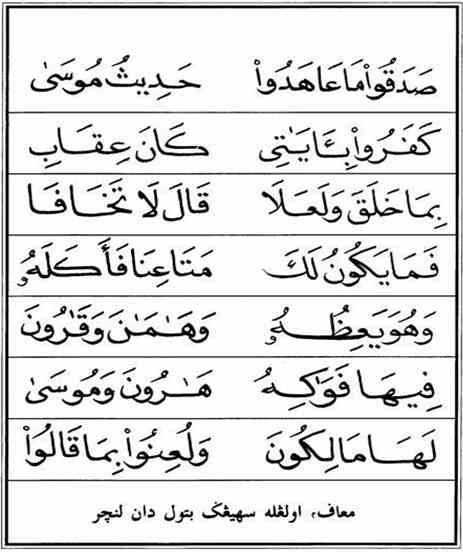 صَدَقُواْ مَا عَاهَدُواْ حَدِيثُ مُوسَىٰ
كَفَرُواْ بِـَٔايَـٰتِى كَانَ عِقَابِ
بِمَا خَلَقَ وَلَعَلَا قَالَ لَا تَخَافَا
فَمَا يَكُونُ لَكَ مَتَـٰعِنَا فَأَكَلَهُۥ
وَهُوَ يَعِظُهُۥ وَهَـٰمَـٰنَ وَقَـٰرُونَ
فِيهَا فَوَٰكِهُ هَـٰرُونَ وَمُوسَىٰ
لَهَا مَـٰلِكُونَ وَلُعِنُواْ بِمَا قَالُواْ
معاف، اولڠله سهيڠݢ بتول دان لنچر